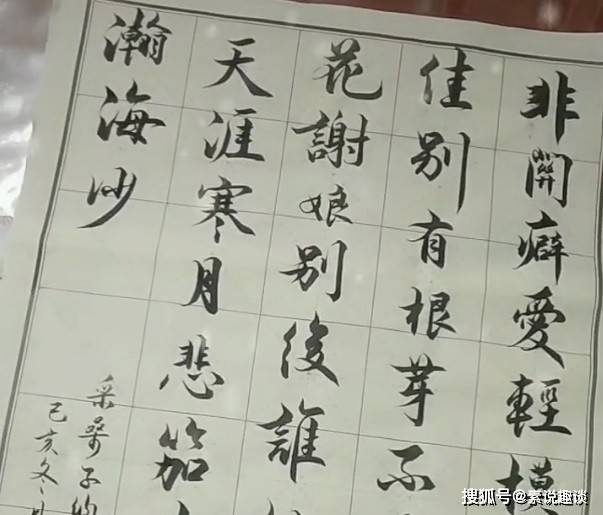 非關癖愛輕模
佳別有根芽不
花謝娘別後誰
天涯寒月悲笳
瀚海沙
采桑子
己亥冬
搜狐号@素说趣谈